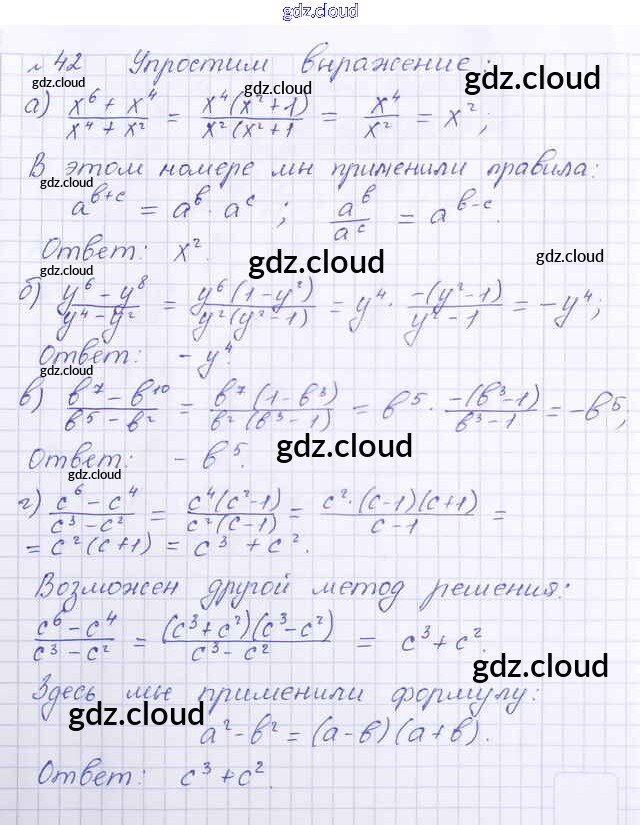 gdz.cloud
№42 Упростим выражение:
gdz.cloud gdz.cloud gdz.cloud
а) (x⁶ + x⁴)/(x⁴ + x²) = (x⁴(x² + 1))/(x²(x² + 1 = x⁴/x² = x²;
В этом номере мы применили правила:
gdz.cloud
a^(b+c) = a^b · a^c ; a^b/a^c = a^(b-c).
Ответ: x².
gdz.cloud gdz.cloud gdz.cloud
б) (y⁶ - y⁸)/(y⁴ - y²) = (y⁶(1 - y²))/(y²(y² - 1)) = y⁴ · (-(y² - 1))/(y² - 1) = - y⁴;
Ответ: - y⁴.
gdz.cloud
в) (b⁷ - b¹⁰)/(b⁵ - b²) = (b⁷(1 - b³))/(b²(b³ - 1)) = b⁵ · (-(b³ - 1))/(b³ - 1) = - b⁵;
gdz.cloud
Ответ: - b⁵.
gdz.cloud
г) (c⁶ - c⁴)/(c³ - c²) = (c⁴(c² - 1))/(c²(c - 1)) = (c² · (c - 1)(c + 1))/(c - 1) =
= c²(c + 1) = c³ + c².
Возможен другой метод решения:
(c⁶ - c⁴)/(c³ - c²) = ((c³ + c²)(c³ - c²))/(c³ - c²) = c³ + c².
gdz.cloud
Здесь мы применили формулу:
gdz.cloud
a² - b² = (a - b)(a + b).
Ответ: c³ + c².
gdz.cloud